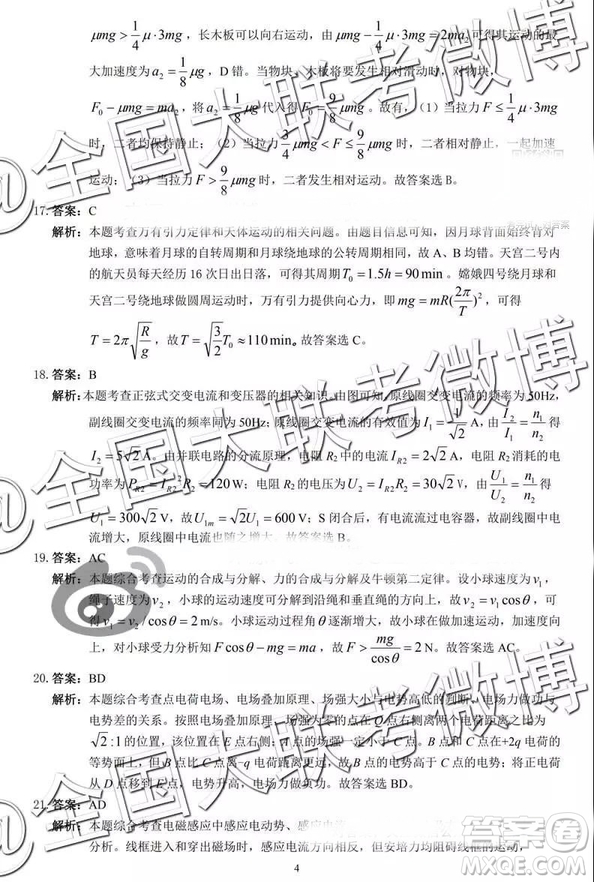 μmg > 1/4 μ·3mg，长木板可以向右运动，由 μmg − 1/4 μ·3mg = 2ma₂ 可得木板运动的最
大加速度为 a₂ = 1/8 μg，D 错。当物块、木板将要发生相对滑动时，对物块，
F₀ − μmg = ma₂，将 a₂ = 1/8 μg 代入得 F₀ = 9/8 μmg。故有，（1）当拉力 F ≤ 1/4 μ·3mg
时，二者均保持静止；（2）当拉力 3/4 μmg < F ≤ 9/8 μmg 时，二者相对静止，一起加速
运动；（3）当拉力 F > 9/8 μmg 时，二者发生相对运动。故答案选 B。
17. 答案：C
解析：本题考查万有引力定律和天体运动的相关问题。由题目信息可知，因月球背面始终背对
地球，意味着月球的自转周期和月球绕地球的公转周期相同，故 A、B 均错。天宫二号内
的航天员每天经历 16 次日出日落，可得其周期 T₀ = 1.5h = 90min。嫦娥四号绕月球和
天宫二号绕地球做圆周运动时，万有引力提供向心力，即 mg = mR(2π/T)²，可得
T = 2π√(R/g)，故 T = √(3/2) T₀ ≈ 110min。故答案选 C。
18. 答案：B
解析：本题考查正弦式交变电流和变压器的相关知识。由图可知，原线圈交变电流的频率为 50Hz，
副线圈交变电流的频率同为 50Hz；原线圈交变电流的有效值为 I₁ = 1/√2 A，由 I₂/I₁ = n₁/n₂ 得
I₂ = 5√2 A。由并联电路的分流原理，电阻 R2 中的电流为 I_R2 = √2 A，电阻 R2 消耗的电
功率为 P_R2 = I_R2² R₂ = 120W；电阻 R2 的电压为 U₂ = I_R2 R₂ = 30√2 V，由 U₁/U₂ = n₁/n₂ 得
U₁ = 300√2 V，故 U₁m = √2 U₁ = 600V；S 闭合后，有电流流过电容器，故副线圈中电
流增大，原线圈中电流也随之增大。故答案选 B。
19. 答案：AC
解析：本题综合考查运动的合成与分解、力的合成与分解及牛顿第二定律。设小球速度为 v₁，
绳子速度为 v₂，小球的运动速度可分解到沿绳和垂直绳的方向上，故 v₂ = v₁ cosθ，可
得 v₁ = v₂/cosθ = 2 m/s。小球运动过程角 θ 逐渐增大，故小球做加速度增大的加速度运动，
上，对小球受力分析知 F cosθ − mg = ma，故 F > mg/cosθ = 2。故答案选 AC。
20. 答案：BD
解析：本题综合考查点电荷电场、电场叠加原理、场强大小与电势高低的判断、电场力做功与
电势差的关系。按照电场叠加原理，场强为零的点在 O 点右侧到两点电荷的距离之比为
√2:1 的位置，该位置在 E 点右侧；A 点的场强一定不小于 C 点；A、C 两点在+2q 电荷的
等势面上，但 C 点离-q 电荷距离更远，故 C 点电势高于 A 点的电势；将正电荷
从 D 点移到 E 点，电势升高，电场力做负功。故答案选 BD。
21. 答案：AD
解析：本题综合考查电磁感应中感应电动势、感应电
分析。线框进入和穿出磁场时，感应电流方向相反，但安培力均阻碍线框的运动，
4
@全国大联考微博
@全国大联考微博
答案圈
MXQE.COM